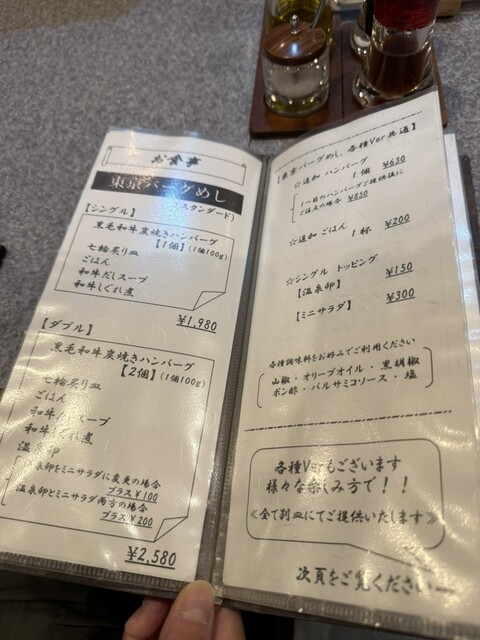 お食事
東京バーグめし
スタンダード)
【シングル】
黒毛和牛炭焼きハンバーグ
【1個】(1個100g)
七輪炙り皿
ごはん
和牛だしスープ
和牛しぐれ煮
¥1,980
【ダブル】
黒毛和牛炭焼きハンバーグ
【2個】(1個100g)
七輪炙り皿
ごはん
和牛だしスープ
和牛しぐれ煮
温泉卵
温泉卵をミニサラダに変更の場合
プラス¥100
温泉卵とミニサラダ両方の場合
プラス¥200
¥2,580
【東京バーグめし、各種Ver共通】
☆追加 ハンバーグ
1個 ¥630
1〜個目のハンバーグご提供後に
ご注文の場合 ¥850
☆追加 ごはん 1杯 ¥200
☆シングル トッピング
【温泉卵】 ¥150
【ミニサラダ】 ¥300
各種調味料をお好みでご利用ください
山椒・オリーブオイル・黒胡椒
ポン酢・バルサミコソース・塩
各種Verもございます
様々な楽しみ方で!!
《全て別皿にてご提供いたします》
次頁をご覧ください